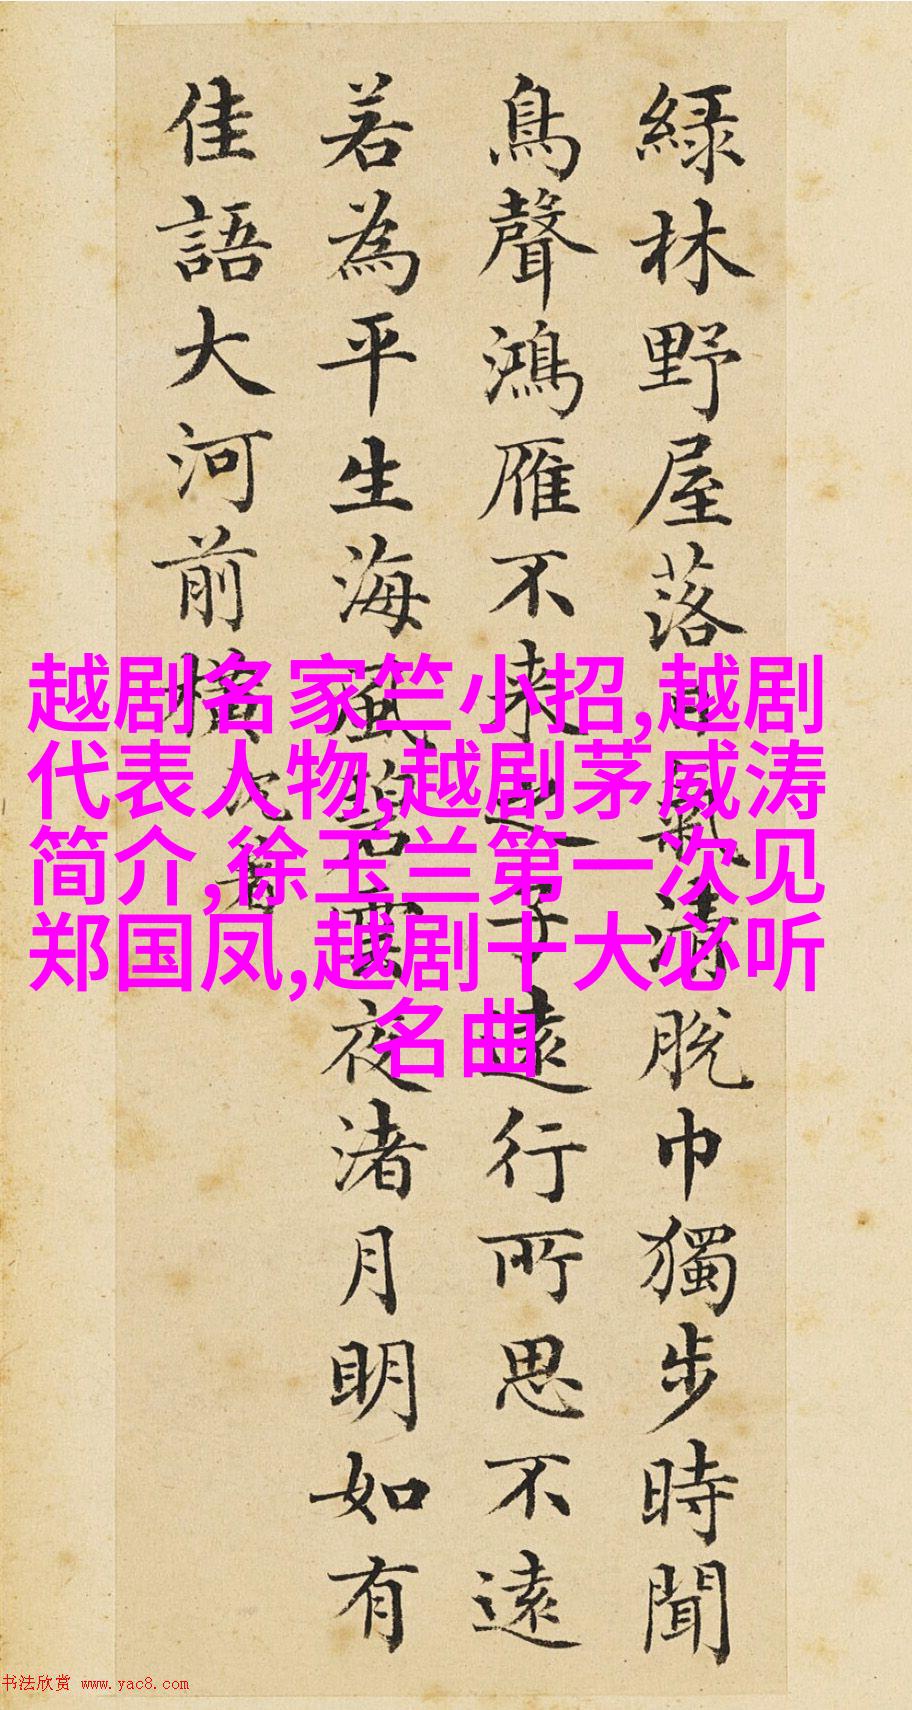 綠林野屋落日氣清脫巾獨步時聞
鳥聲鴻雁不来之子遠行所思不遠
若為平生海風碧雲夜渚月明如有
佳語大河前橫沈著
越剧名家竺小招,越剧
代表人物,越剧茅威涛
简介,徐玉兰第一次见
郑国凤,越剧十大必听
名曲
书法欣赏 www.yac8.com